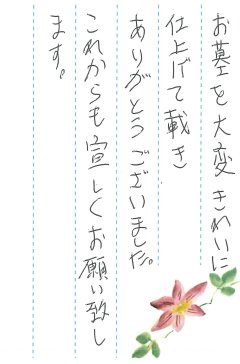 お墓を大変きれいに
仕上げて載き
ありがとうございました。
これからも宣しくお願い致し
ます。